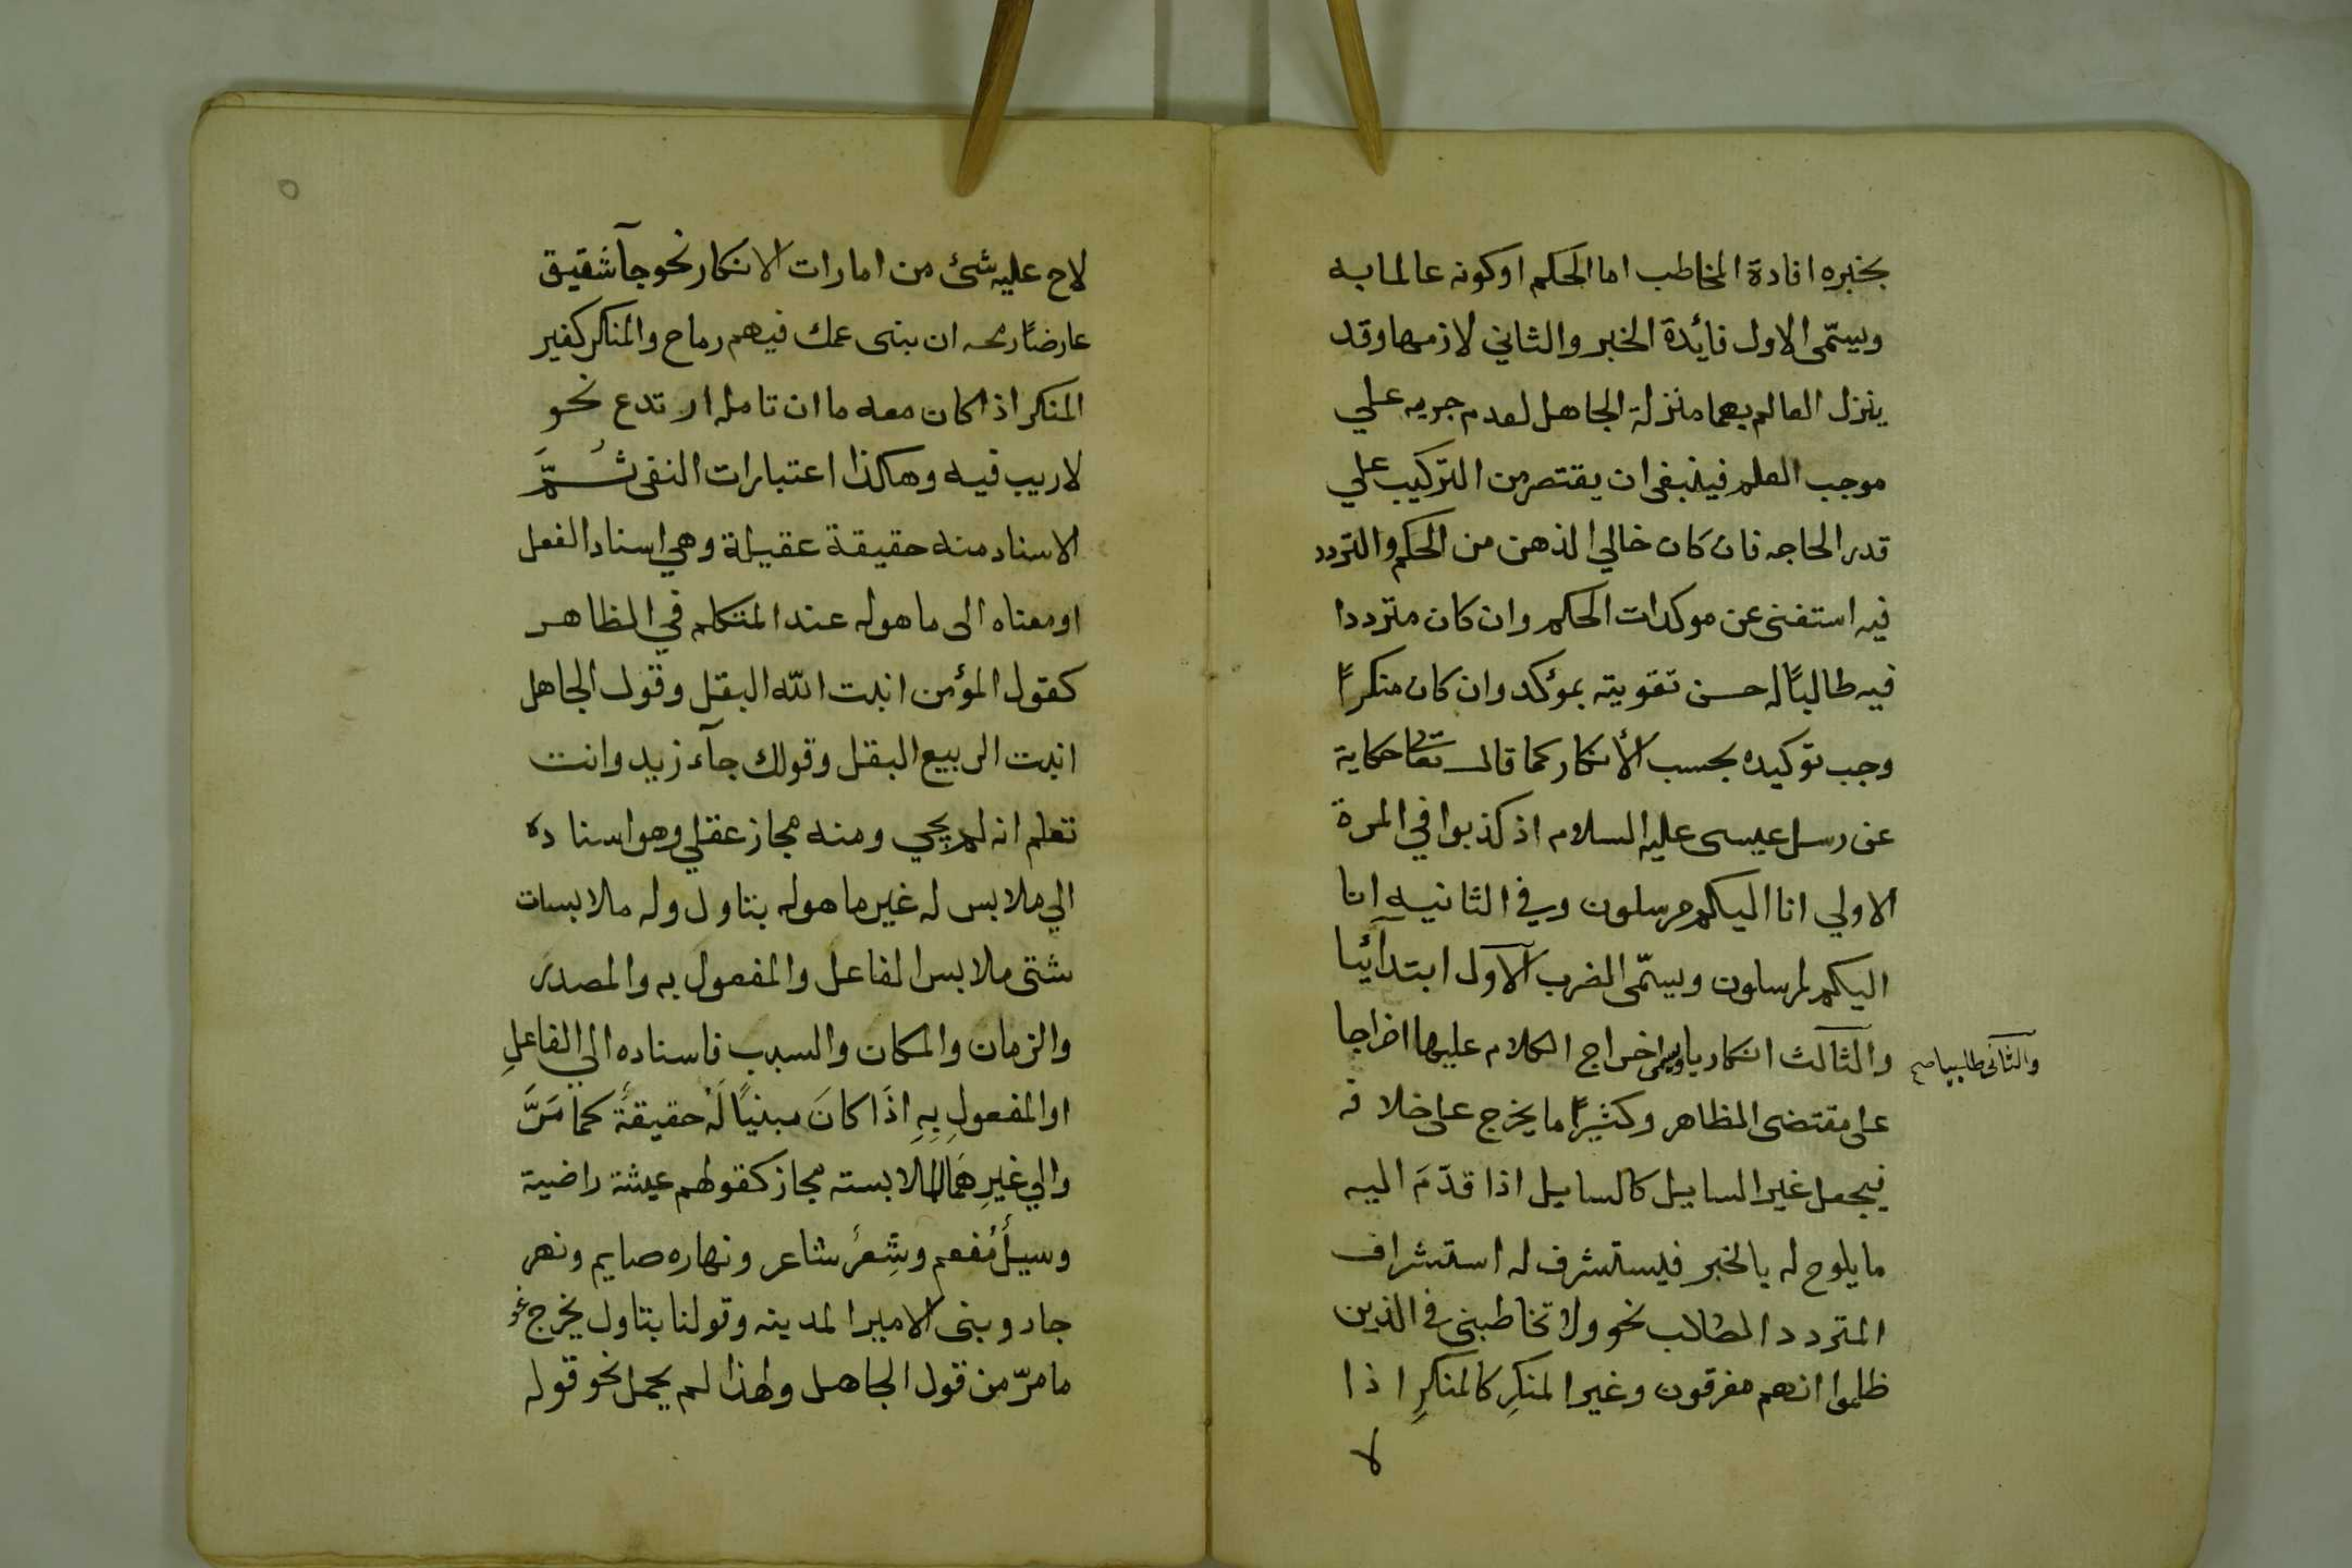 بخبره افادة المخاطب اما الحكم اوكونه عالما به
ويسمّى الاول فائدة الخبر والثاني لازمها وقد
ينزل العالم بهما منزلة الجاهل لعدم جريه علي
موجب العلم فينبغى ان يقتصر من التركيب علي
قدر الحاجه فان كان خالي الذهن من الحكم والتردد
فيه استغنى عن موكدات الحكم وان كان مترددا
فيه طالبًا له حسن تقويته بمؤكد وان كان منكرًا
وجب توكيده بحسب الأنكار كما قال تعا حكاية
عن رسل عيسى عليه السلام اذ كذبوا في المرة
الاولي انا اليكم مرسلون وفي الثانيه انا
اليكم لمرسلون ويسمّى الضرب الآول ابتدآئيا
والثانى طلبيا صح
والثالث انكاريا ويسمى اخراج الكلام عليها اخراجا
على مقتضى الظاهر وكثيرًا ما يخرج على خلافه
فيجعل غير السايل كالسايل اذا قدّمَ اليه
ما يلوح له بالخبر فيستشرف له استشراف
المتردد الطالب نحو ولا تخاطبنى في الذين
ظلموا انهم مغرقون وغير المنكِر كالمنكرِ اذا
لا
لاح عليه شئ من امارات الانكار نحو جآ شقيق
عارضًا رمحه ان بنى عمك فيهم رماح والمنكر كغير
المنكر اذا كان معه ما ان تامله ارتدع نحو
لا ريب فيه وهكذا اعتبارات النفى ثُمَّ
الاسناد منه حقيقة عقيلة وهي اسناد الفعل
او معناه الى ما هوله عند المتكلم في الظاهر
كقول المؤمن انبت الله البقل وقول الجاهل
انبت الربيع البقل وقولك جآء زيد وانت
تعلم انه لم يجي ومنه مجاز عقلي وهو اسناده
الي ملابس له غير ما هوله بتاول وله ملابسات
شتى ملابس الفاعل والمفعول به والمصدر
والزمان والمكان والسبب فاسناده الي الفاعلِ
او المفعولِ بِهِ اذَا كانَ مبنيًا لَهُ حقيقةً كما مَرَّ
والي غيرِهَما للملابسته مجاز كقولهم عيشة راضية
وسيلٌ مُفعم وشِعرٌ شاعر ونهاره صايم ونهر
جار وبنى الامير المدينه وقولنا بتاول يخرج نحو
ما مرّ من قول الجاهل ولهذا لم يحمل نحو قوله